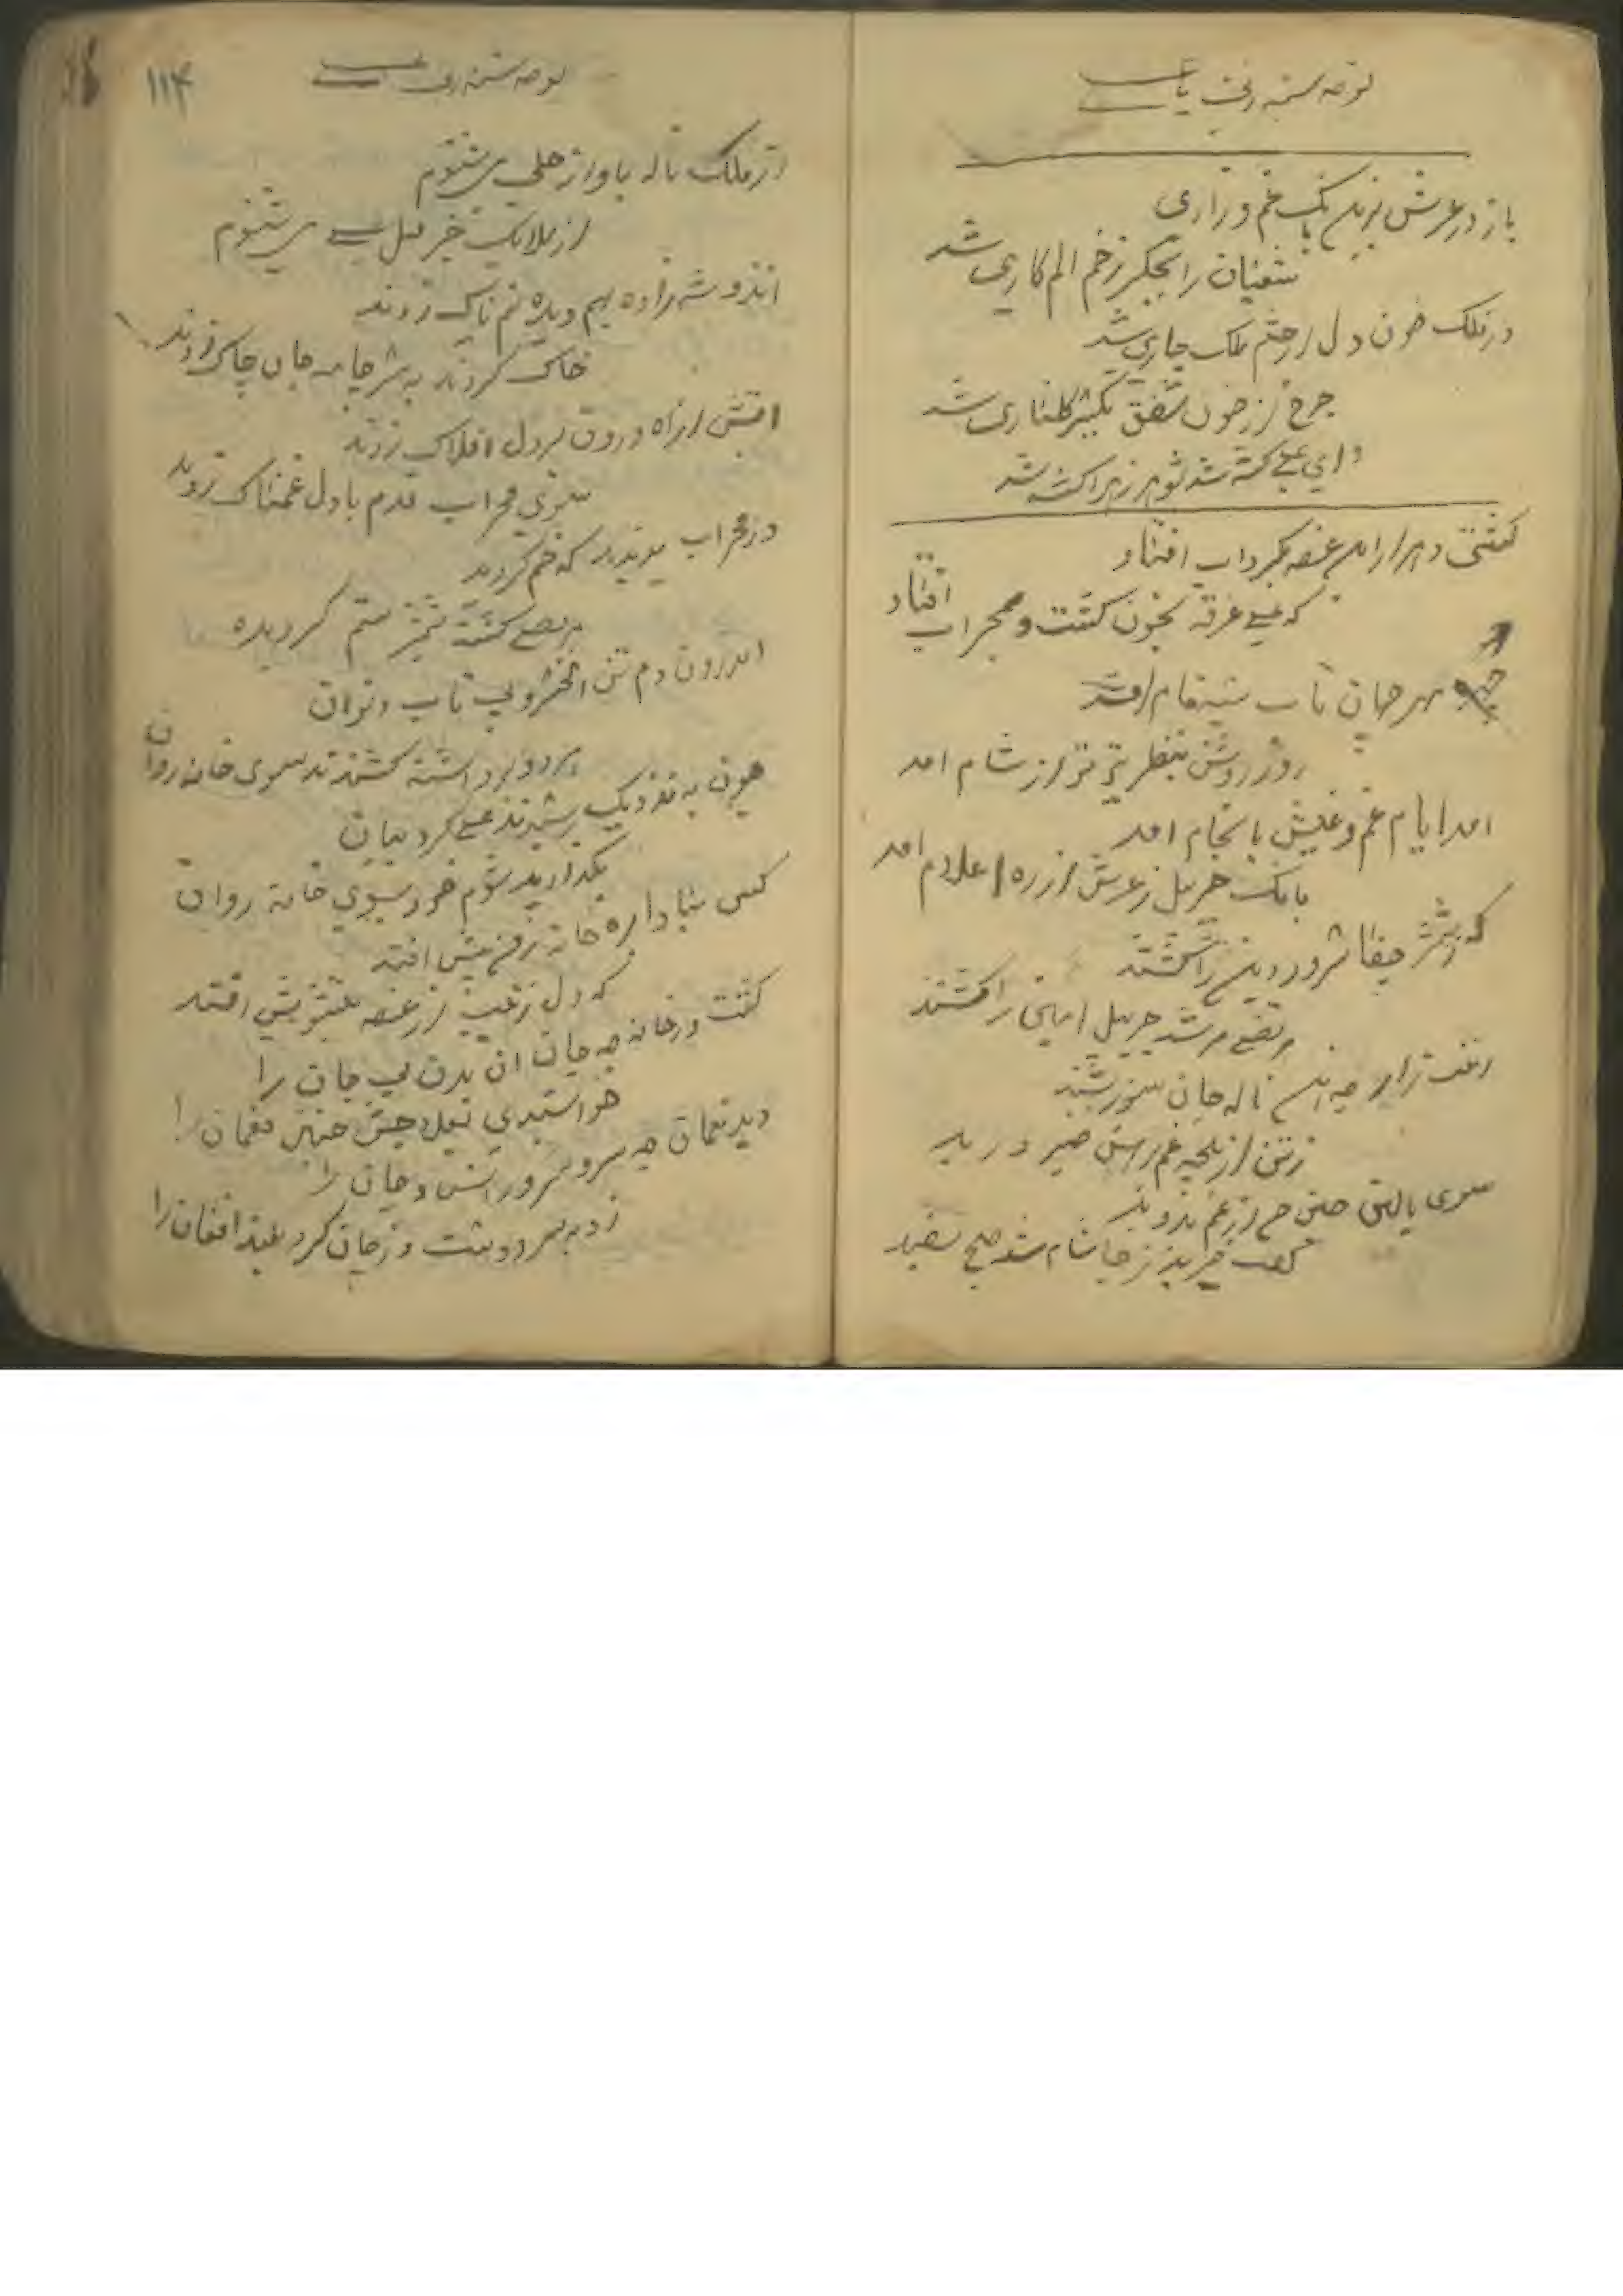 نوحه سینه زنی یا علی
باز در عرش برین بانک غم و زاری شد
شعیان را بجگر زخم الم کاری شد
در فلک خون دل از چشم ملک جاری شد
چرخ از خون شفق یکسر گلناری شد
وای علی کشته شد شوهر زهرا کشته شد
کشتی دهر از این غصه بگرداب افتاد
که علی غرقه بخون کشت و محراب افتاد
مهر جهان تاب سیه فام امد
روز روشن بنظر تیره تر از شام امد
امد ایام غم و عیش بانجام امد
بانک جبریل ز عرش از ره اعلام امد
که ز شمشیر جفا سرور دین را کشتند
مرتضی مرشد جبریل امین را کشتند
رفت زار چه این ناله جان سوز شنید
ز تن از پنجه غم پیرهن صبر درید
سوی بالین حسن حسین از غم بدوید
گفت خیزید ز جا شام شد صبح سفید
نوحه سینه زنی علی
۱۱۴
از فلک ناله باواز جلی می شنوم
از ملایک خبر قتل علی می شنوم
اندو شه زاده بهم دیده نم ناک زدند
خاک کردند بسر جامه جان چاک زدند
اتش از اه درون بر دل افلاک زدند
سوی محراب قدم با دل غمناک زدند
در محراب بدیدند که خم گردیده
مرتضی کشته شمشیر ستم گردیده
اندر ان دم تن انخسرو بی تاب و توان
برد و برداشته کشتند سوی خانه روان
چون به نزدیک رسیدند علی کرد بیان
بگذارید شوم خود بسوی خانه روان
کس مبادا بره خانه ز من پیش افتد
که دل زینب از غصه بتشویش افتد
گشت در خانه چه جان ان بدن بی جان را
خواستندی بعلاجش حسنین نعمان را
دید نعمان چه سر و سرور انس و جان را
زد بسر دو دست و ز جان کرد بلند افغان را